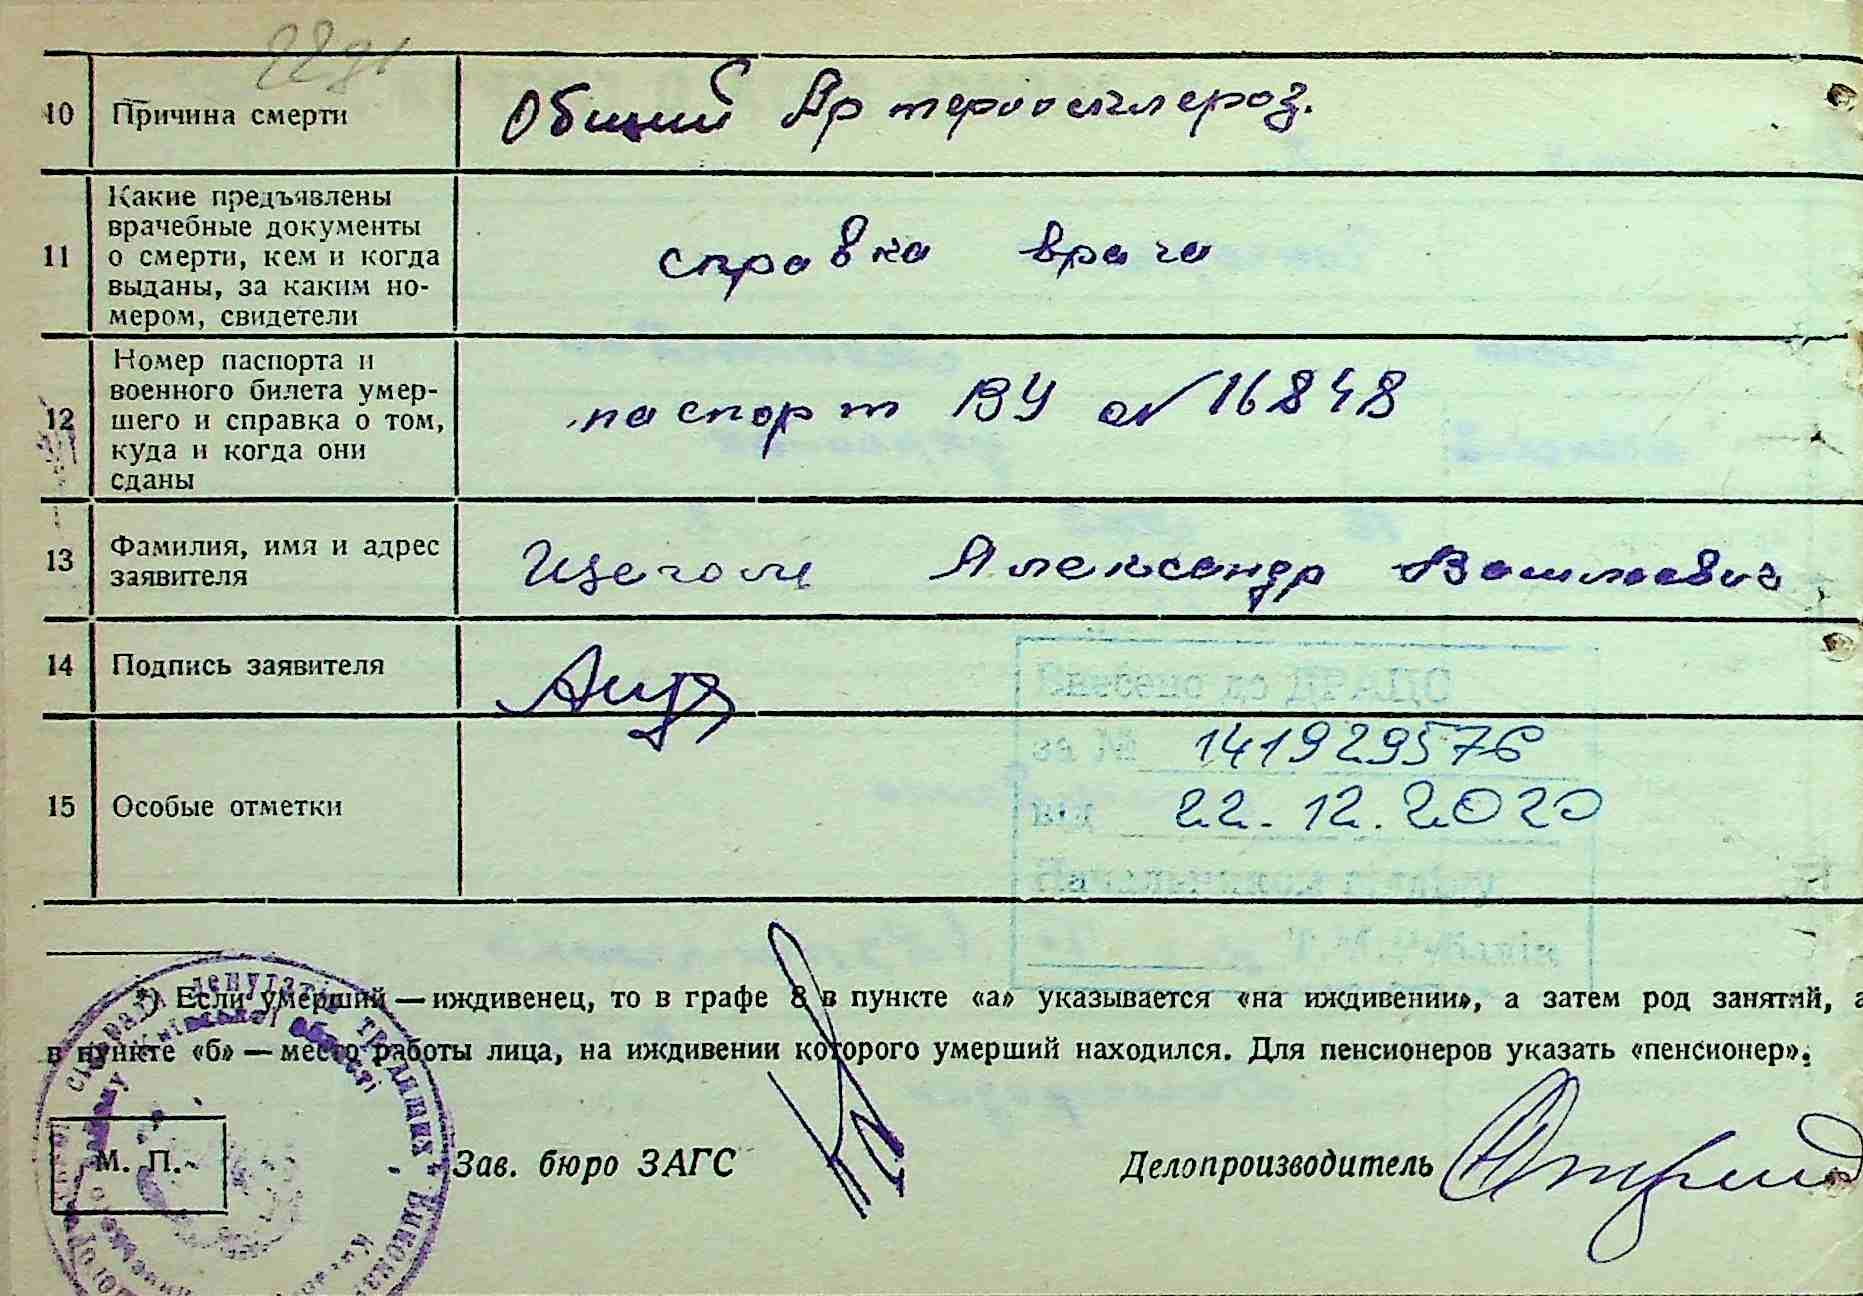 10
Причина смерти
Общий Артериосклероз.
11
Какие предъявлены
врачебные документы
о смерти, кем и когда
выданы, за каким но-
мером, свидетели
справка врача
12
Номер паспорта и
военного билета умер-
шего и справка о том,
куда и когда они
сданы
паспорт ВУ № 16848
13
Фамилия, имя и адрес
заявителя
Щеголь Александр Васильевич
14
Подпись заявителя
Внесено до ДРАЦС
за № 141929576
від 22.12.2020
Начальник відділу
15
Особые отметки
*) Если умерший — иждивенец, то в графе 8 в пункте «а» указывается «на иждивении», а затем род занятий, а
в пункте «б» — место работы лица, на иждивении которого умерший находился. Для пенсионеров указать «пенсионер».
депутатів трудящих
області
М. П.
Зав. бюро ЗАГС
Делопроизводитель